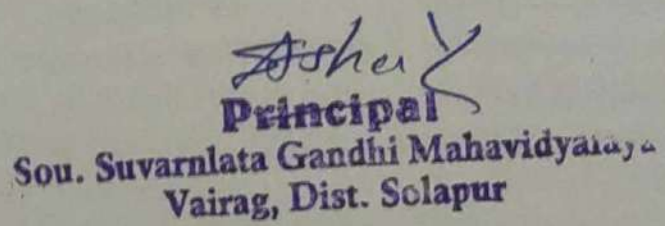 Principal
Sou. Suvarnlata Gandhi Mahavidyalaya
Vairag, Dist. Solapur